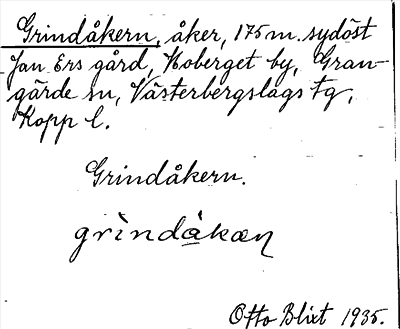 Grindåkern, åker, 175 m. sydöst
Jan Ers gård, Hoberget by, Gran-
gärde sn, Västerbergslags tg,
Kopp l.
Grindåkern.
grìndåkæɳ
Otto Blixt 1935.